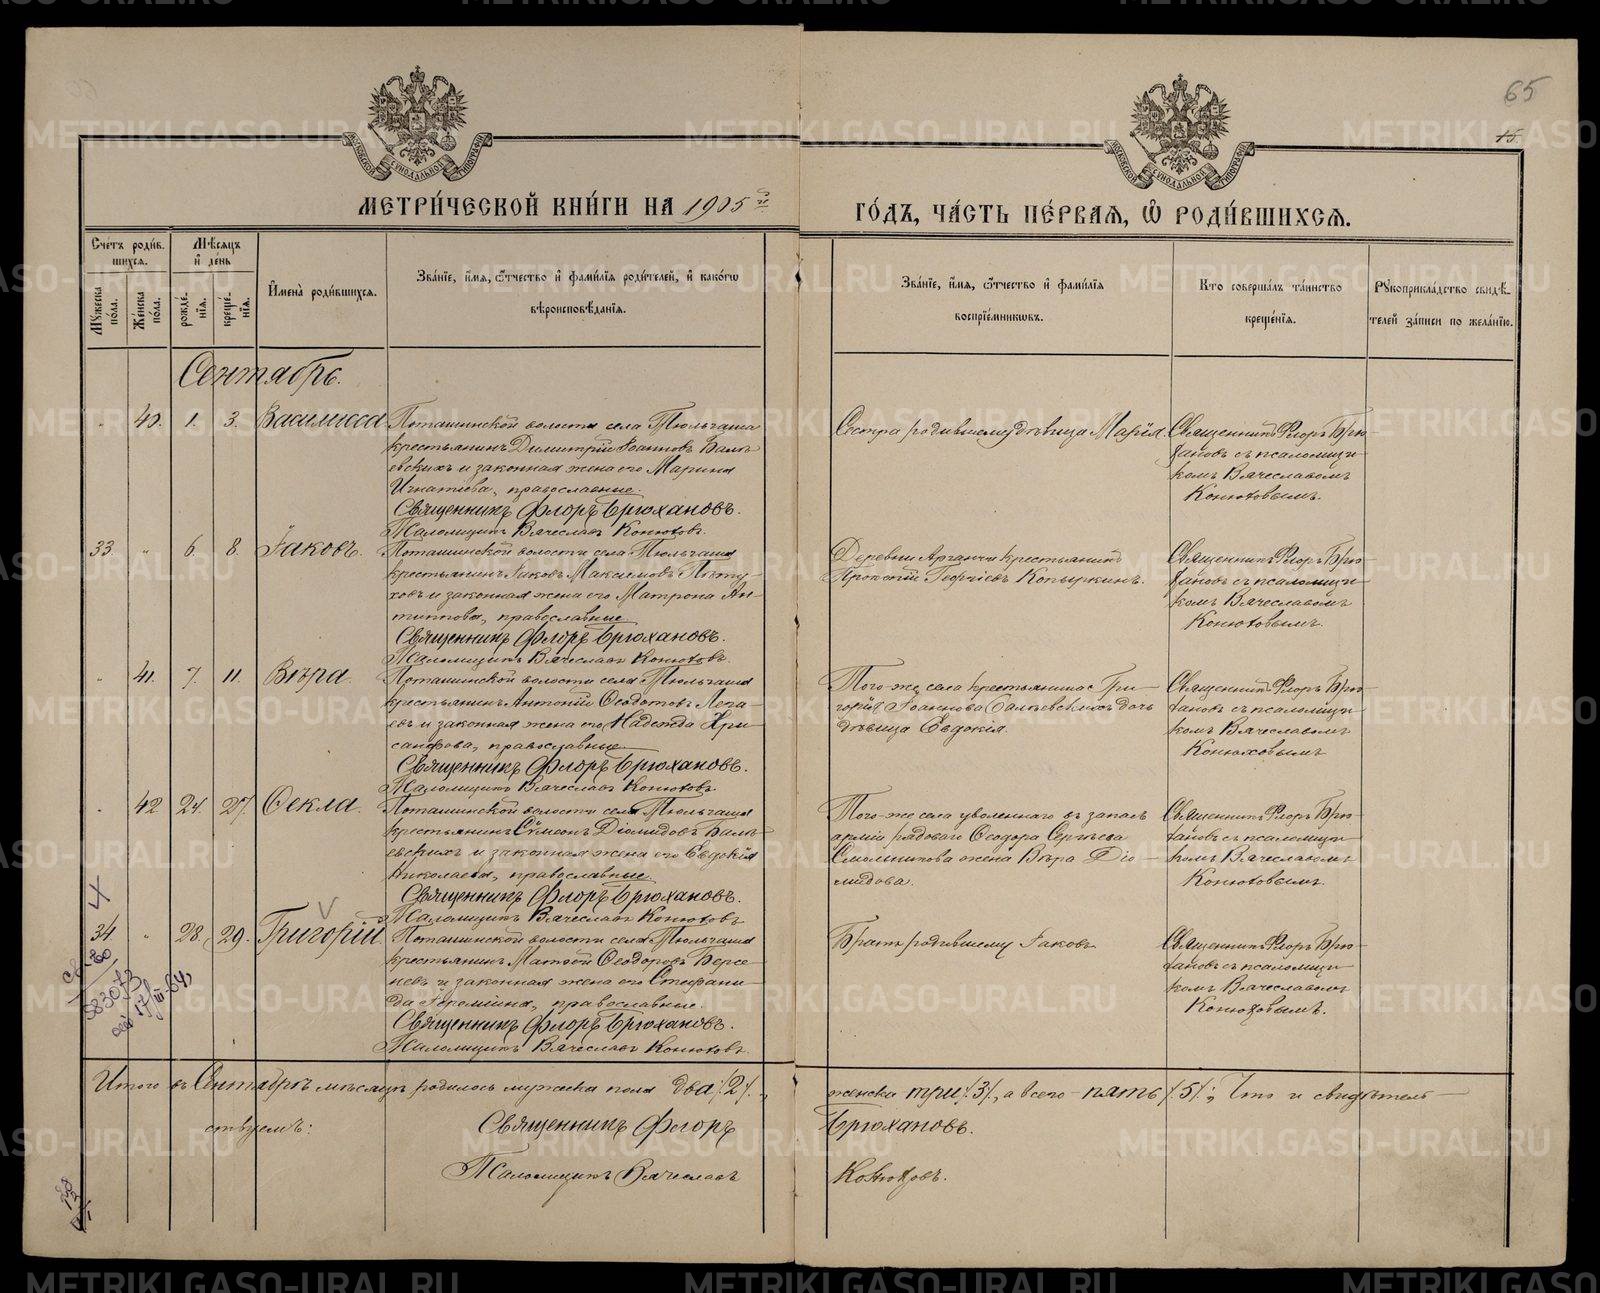 65
15.
МЕТРИ́ЧЕСКОЙ КНИ́ГИ НА 1905 й
ГО́ДЪ, ЧА́СТЬ ПЕ́РВАЯ, Ѽ РОДИ́ВШИХСЯ.
Сче́тъ роди́в-
шихся.
Мѣ́сяцъ
и҆ де́нь
Мꙋ́жеска по́ла.
Же́нска по́ла.
рожде́-
нїя.
креще́-
нїя.
И҆мена̀ роди́вшихся.
Зва́нїе, и҆́мя, ѻ҆́тчество и҆ фами́лїя роди́телей, и҆ како́гѡ
вѣроисповѣ́данїя.
Зва́нїе, и҆́мя, ѻ҆́тчество и҆ фами́лїя
воспрїе́мникѡвъ.
Кто соверша́лъ та́инство
креще́нїя.
Рꙋкоприкла́дство свидѣ́-
телей за́писи по жела́нїю.
Сентябрь.
40. 1. 3. Василисса
Поташинской волости села Тюльгаша
крестьянинъ Димитрій Іоанновъ Балі-
евскихъ и законная жена его Марина
Игнатіева, православные.
Священникъ Флоръ Брюхановъ.
Псаломщикъ Вячеславъ Конюховъ.
Сестра родившемуся дѣвица Марія.
Священникъ Флоръ Брю-
хановъ съ псаломщи-
комъ Вячеславомъ
Конюховымъ.
33. " 6. 8. Іаковъ.
Поташинской волости села Тюльгаша
крестьянинъ Іаковъ Максимовъ Пѣту-
ховъ и законная жена его Матрона Ан-
типова, православные
Священникъ Флоръ Брюхановъ.
Псаломщикъ Вячеславъ Конюховъ.
Деревни Арганчи крестьянинъ
Прокопій Георгіевъ Копыркинъ.
Священникъ Флоръ Брю-
хановъ съ псаломщи-
комъ Вячеславомъ
Конюховымъ.
" 41. 7. 11. Вѣра.
Поташинской волости села Тюльгаша
крестьянинъ Антоній Ѳеодотовъ
и законная жена его Надежда Хри-
санфова, православные
Священникъ Флоръ Брюхановъ.
Псаломщикъ Вячеславъ Конюховъ.
Того-же села крестьянина Гри-
горія Іоаннова дочь
дѣвица Евдокія.
Священникъ Флоръ Брю-
хановъ съ псаломщи-
комъ Вячеславомъ
Конюховымъ
42 24. 27. Ѳекла.
Поташинской волости села Тюльгаша
крестьянинъ Сѵмеонъ Діомидовъ Балі-
евскихъ и законная жена его Евдокія
Николаева, православные.
Священникъ Флоръ Брюхановъ.
Псаломщикъ Вячеславъ Конюховъ
Того-же села уволеннаго въ запасъ
арміи рядоваго Ѳеодора Сергѣева
Смольникова жена Вѣра Діо-
мидова.
Священникъ Флоръ Брю-
хановъ съ псаломщи-
комъ Вячеславомъ
Конюховымъ.
34. " 28. 29. Григорій.
Поташинской волости села Тюльгаша
крестьянинъ Матѳей Ѳеодоровъ Берсе-
невъ и законная жена его Стефани-
да Іереміина, православные.
Священникъ Флоръ Брюхановъ.
Псаломщикъ Вячеславъ Конюховъ.
Братъ родившему Іаковъ.
Священникъ Флоръ Брю-
хановъ съ псаломщи-
комъ Вячеславомъ
Конюховымъ.
Итого въ Сентябрѣ мѣсяцѣ родилось мужеска пола два /2/.,
женска три /3/., а всего - пять /5/; Что и свидѣтель-
ствуемъ:
Священникъ Флоръ Брюхановъ.
Псаломщикъ Вячеславъ Конюховъ.
METRIKI.GASO-URAL.RU